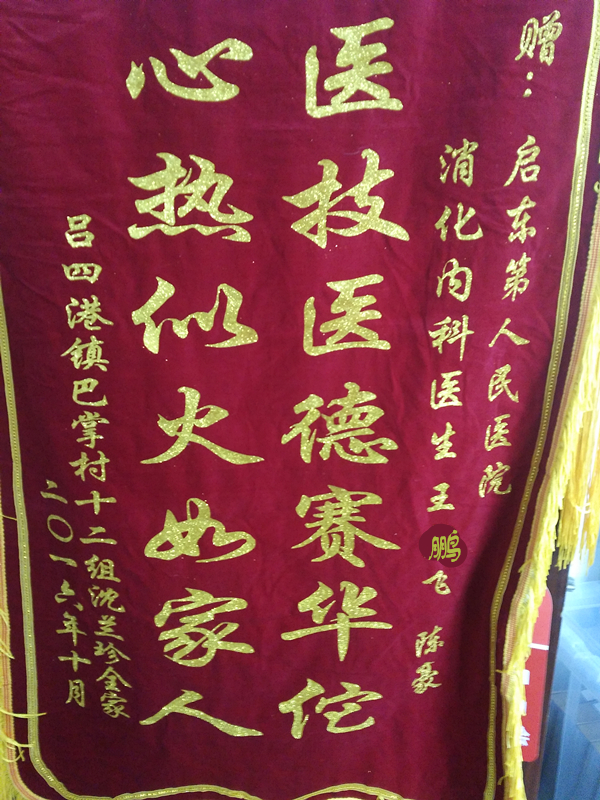 赠：启东第人民医院
消化内科医生王鹏飞 陈豪
医技医德赛华佗
心热似火如家人
吕四港镇巴掌村十二组沈兰珍全家
二〇一六年十月